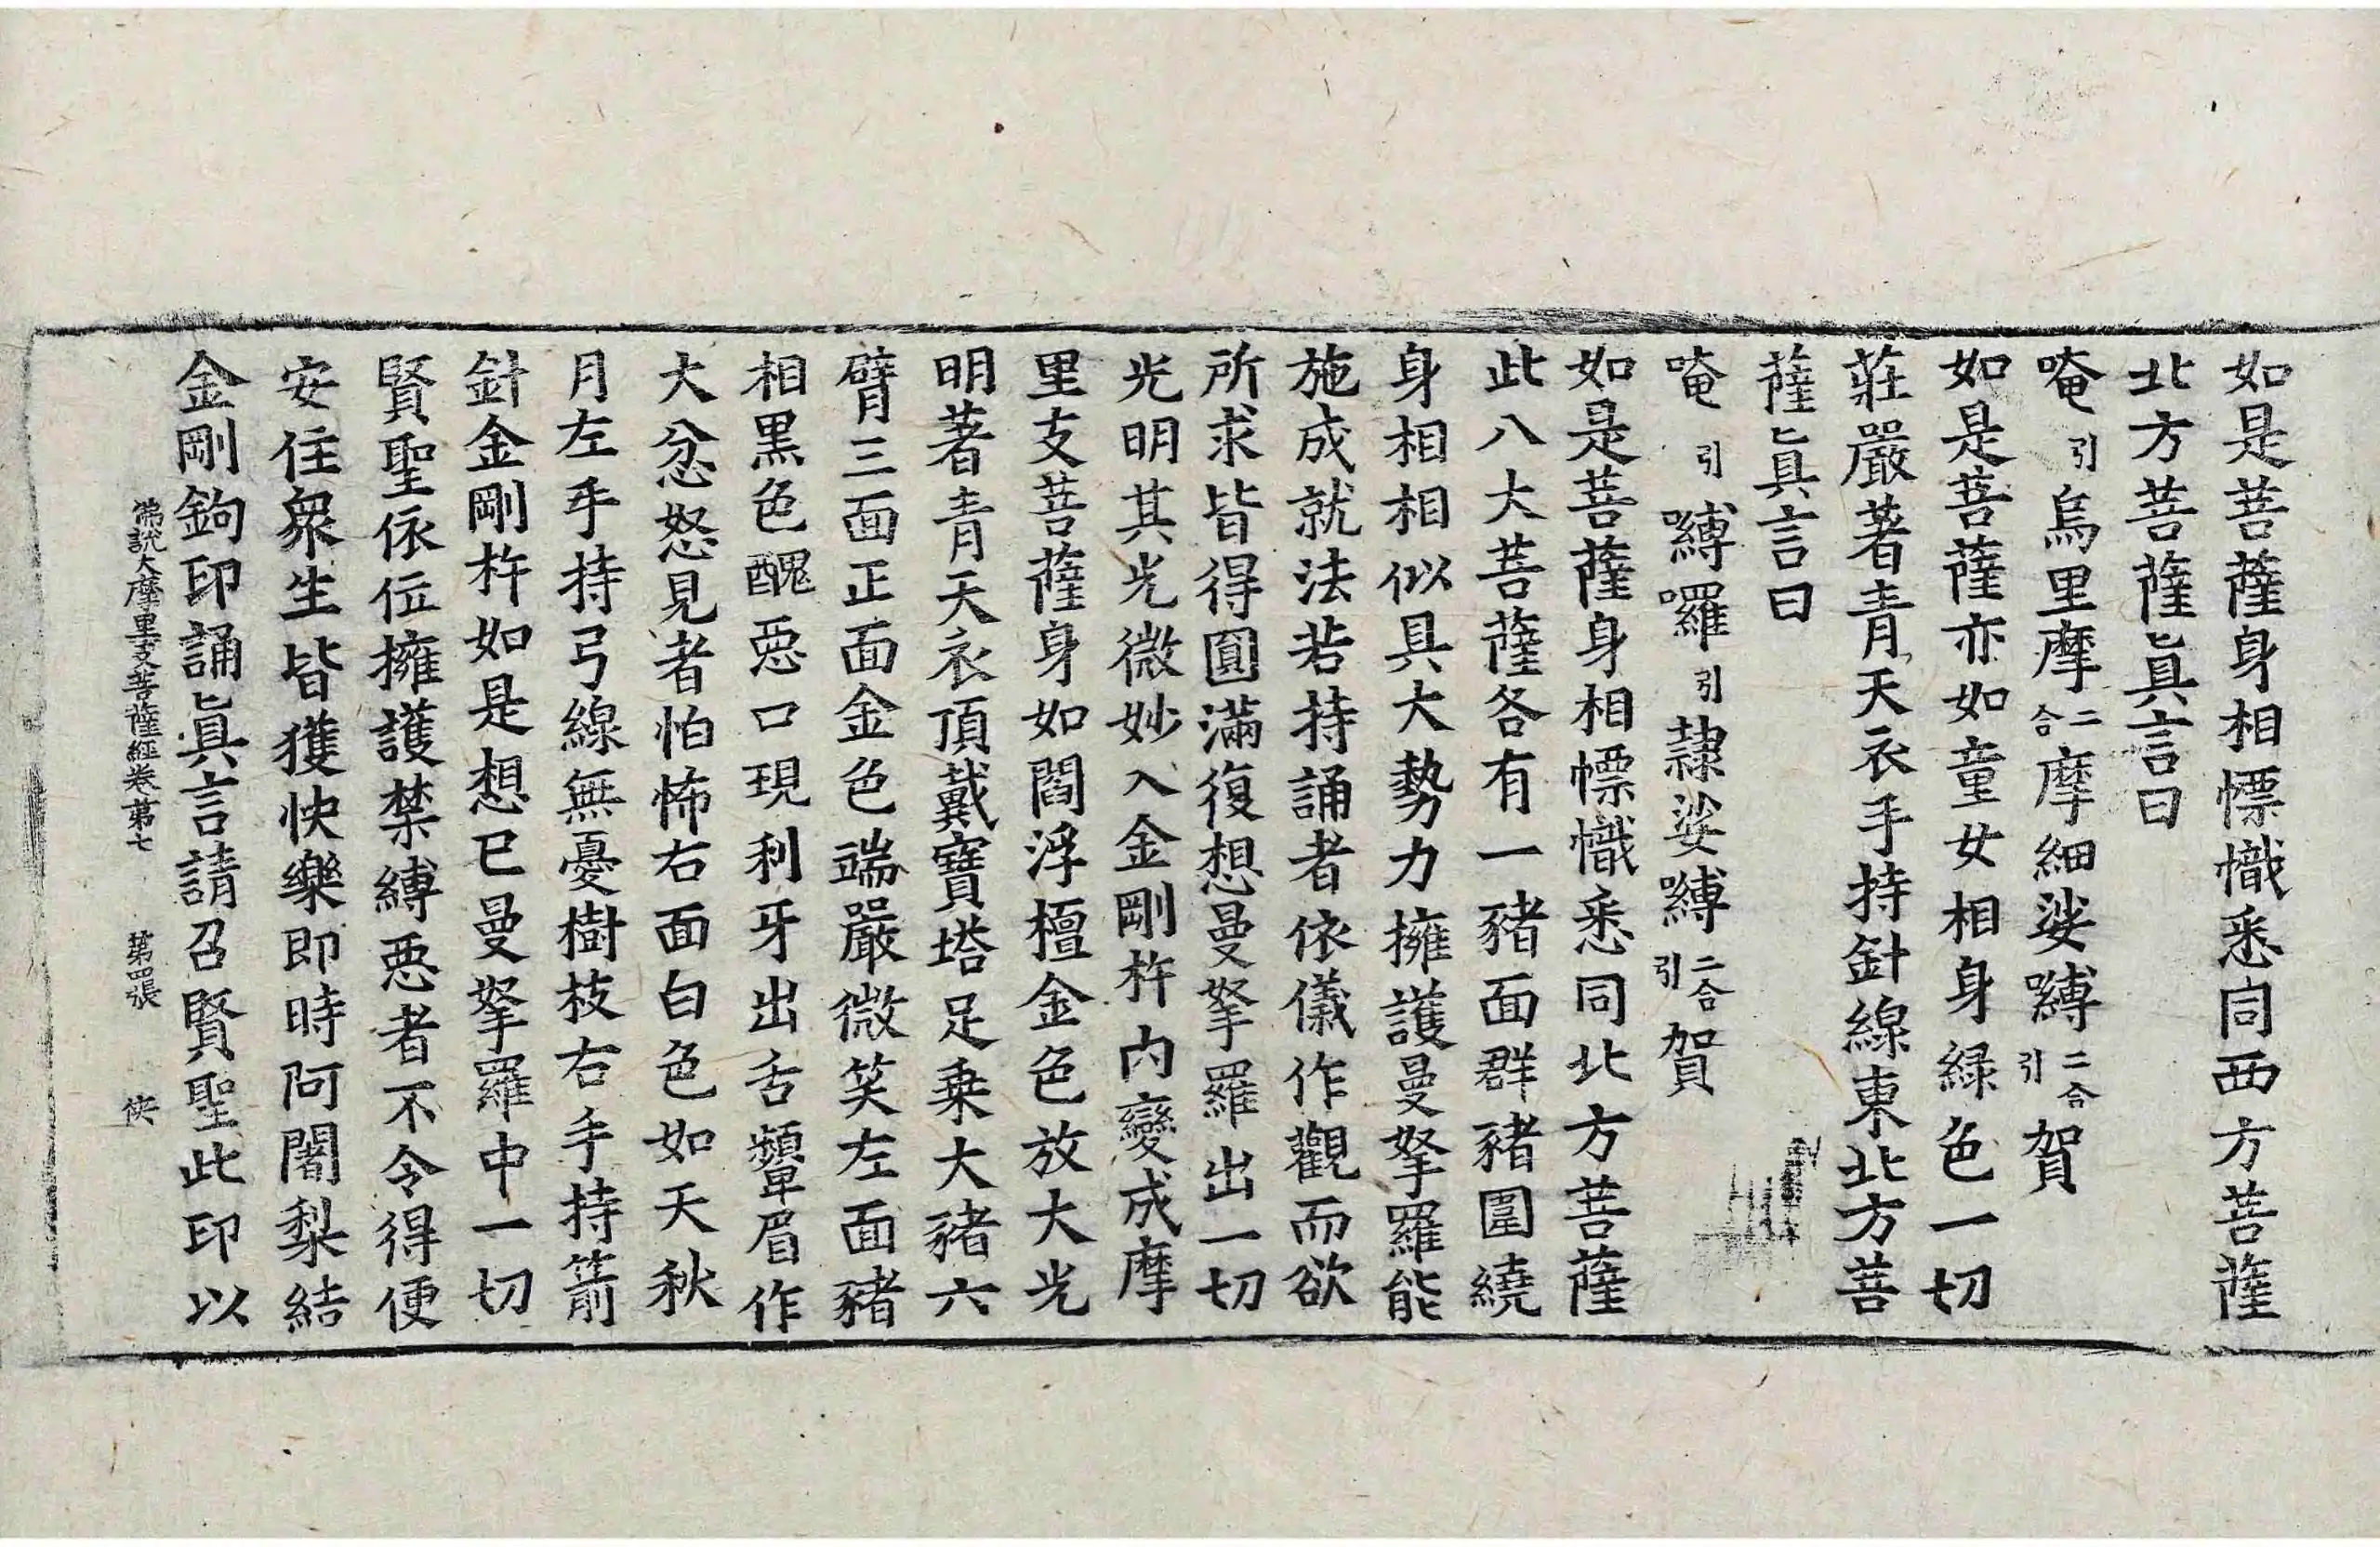 如是菩薩身相慓幟悉同西方菩薩
北方菩薩眞言曰
唵引烏里摩二合摩細娑嚩二合引賀
如是菩薩亦如童女相身緑色一切
莊嚴著青天衣手持針線東北方菩
薩眞言曰
唵引嚩囉引隷娑嚩二合引賀
如是菩薩身相慓幟悉同北方菩薩
此八大菩薩各有一豬面群豬圍繞
身相相似具大勢力擁護曼拏羅能
施成就法若持誦者依儀作觀而欲
所求皆得圓滿復想曼拏羅出一切
光明其光微妙入金剛杵内變成摩
里支菩薩身如閻浮檀金色放大光
明著青天衣頂戴寶塔足乗大豬六
臂三面正面金色端嚴微笑左面豬
相黒色醜惡口現利牙出舌顰眉作
大忿怒見者怕怖右面白色如天秋
月左手持弓線無憂樹枝右手持箭
針金剛杵如是想已曼拏羅中一切
賢聖依位擁護禁縛惡者不令得便
安住衆生皆獲快樂即時阿闍梨結
金剛鉤印誦眞言請召賢聖此印以
佛說大摩里支菩薩經卷第七 第四張 俠